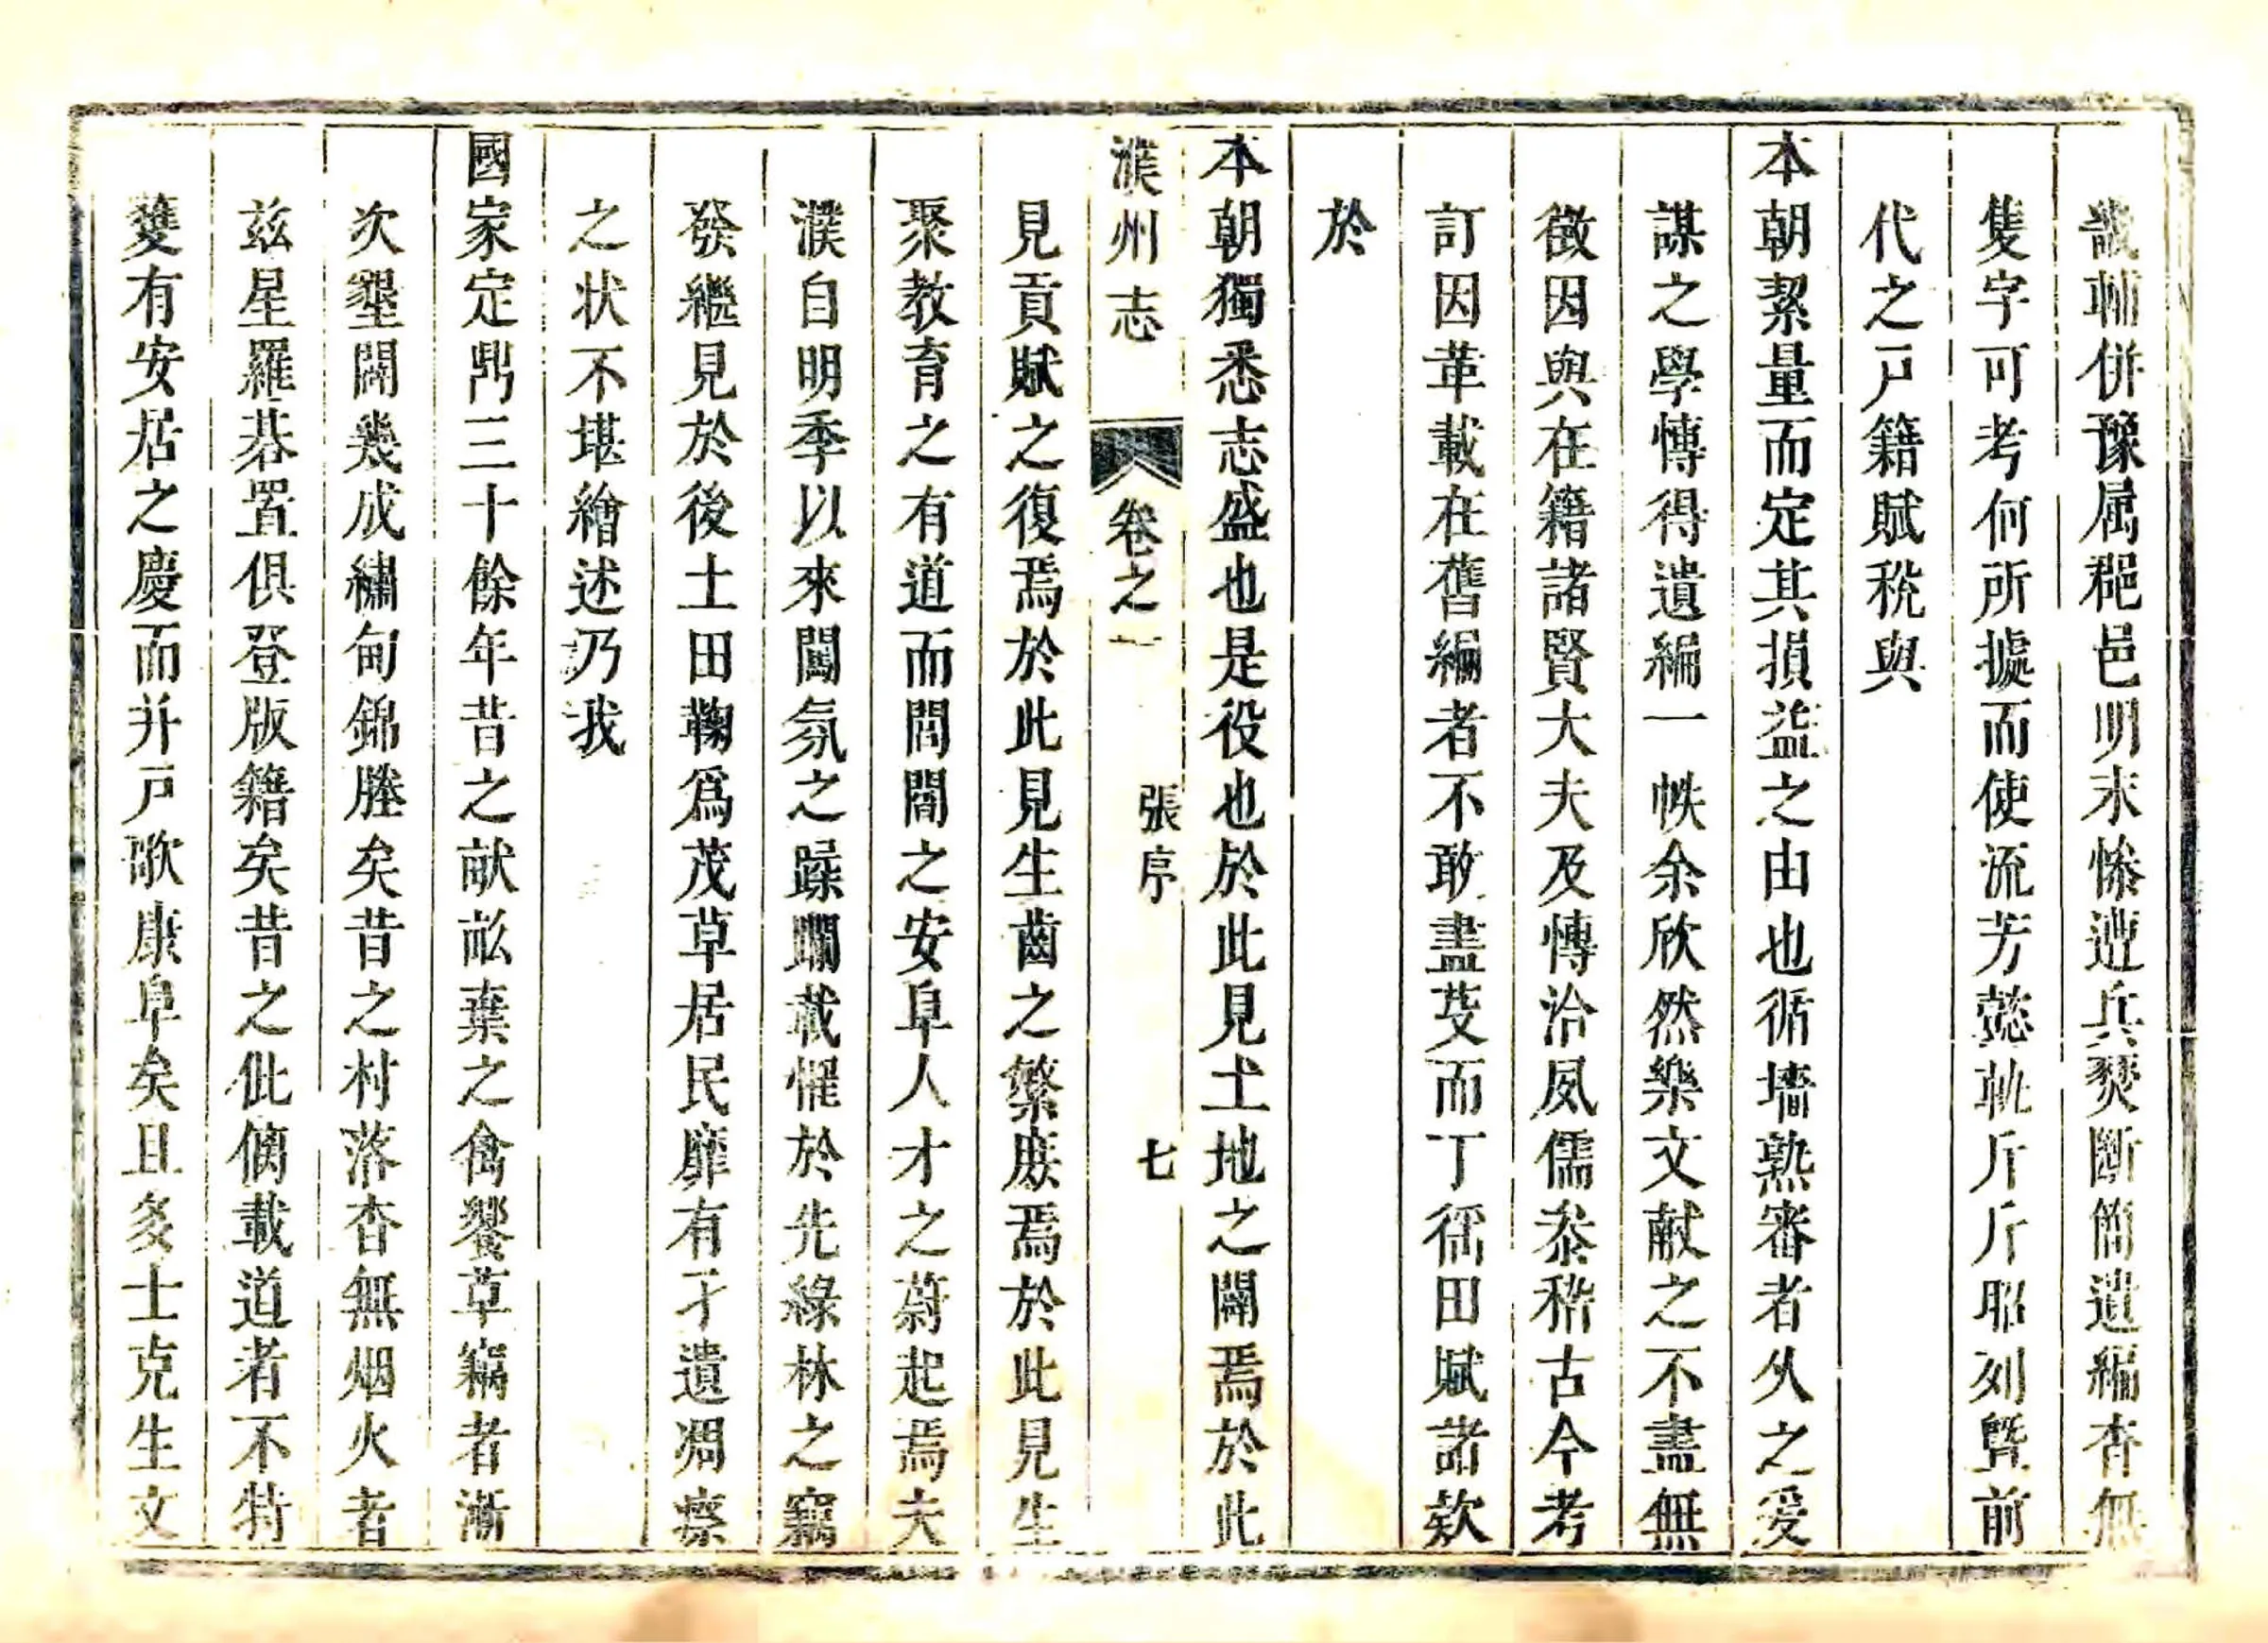 畿輔併豫属䅟邑明末慘遭兵燹斷簡遺編杳無
隻字可考何所據而使流芳懿軌斤斤昭列曁前
代之戸籍賦稅與
本朝絜量而定其損益之由也循墻熟審者乆之爰
謀之學愽得遺編一帙余欣然樂文献之不盡無
徵因與在籍諸賢大夫及愽洽夙儒叅稽古今考
訂因革載在舊編者不敢盡芟而丁徭田賦諸欵
於
本朝獨悉志盛也是役也於此見土地之闢焉於此
濮州志 卷之一 張序 七
見貢賦之復焉於此見生齒之繁庻焉於此見生
聚教育之有道而閭閻之安阜人才之蔚起焉夫
濮自明季以來闖氛之蹂躪載慛於先綠林之竊
發繼見於後土田鞠爲茂草居民靡有孑遺凋瘵
之状不堪繪述乃我
國家定鼎三十餘年昔之献畝棄之禽饗草竊者漸
次墾闢幾成繡甸錦塍矣昔之村落杳無烟火者
兹星羅碁置俱登版籍矣昔之仳㒧載道者不特
䕶有安居之慶而并戸歌康阜矣且多士克生文